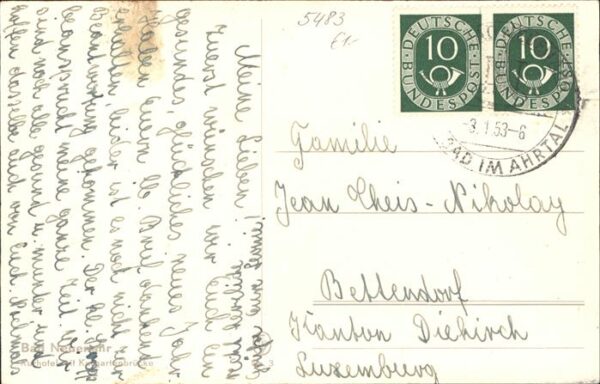 5483
£1.-
DEUTSCHE
10
BUNDESPOST
DEUTSCHE
10
BUNDESPOST
-3.1.53-6
BAD IM AHRTAL
Familie
Jean Theis-Nikolay
Bettendorf
Kanton Diekirch
Luxemburg
Meine Lieben!
Zuerst wünschen wir Euch ein
gesundes, glückliches neues Jahr
Haben Euern lb. Brief dankend
erhalten, leider ist es noch nicht zur
Beantwortung gekommen. Der
beansprucht meine ganze Zeit. Wir
sind noch alle gesund u. munter und
hoffen dasselbe auch von Euch
Bad Neuenahr
Kurhotel mit Kurgartenbrücke
3